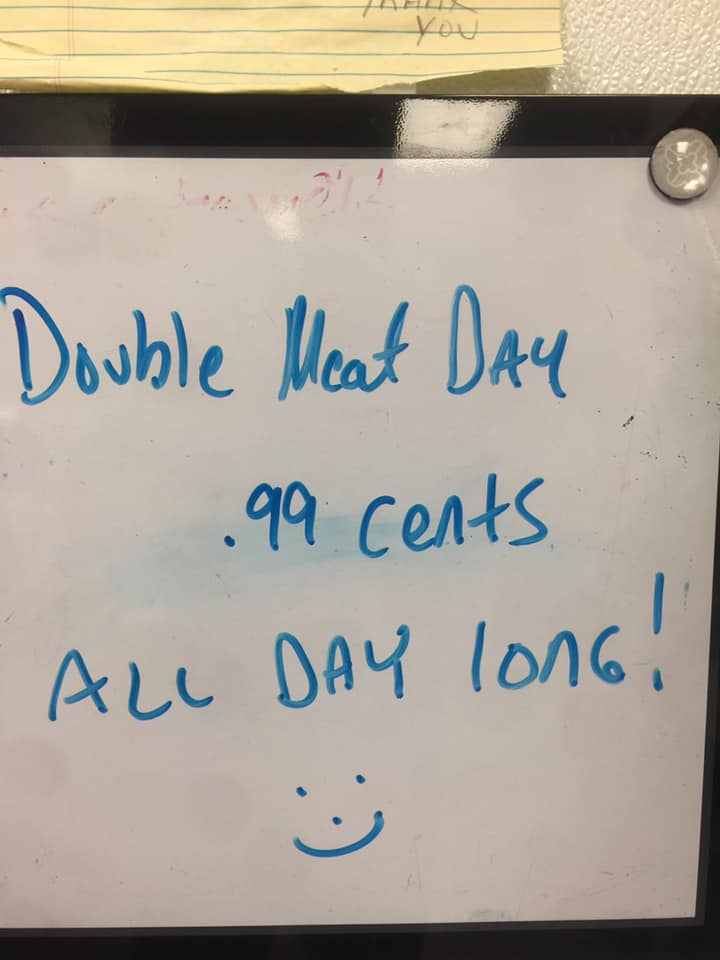 THANK
YOU
Double Meat DAY
.99 cents
ALL DAY long!